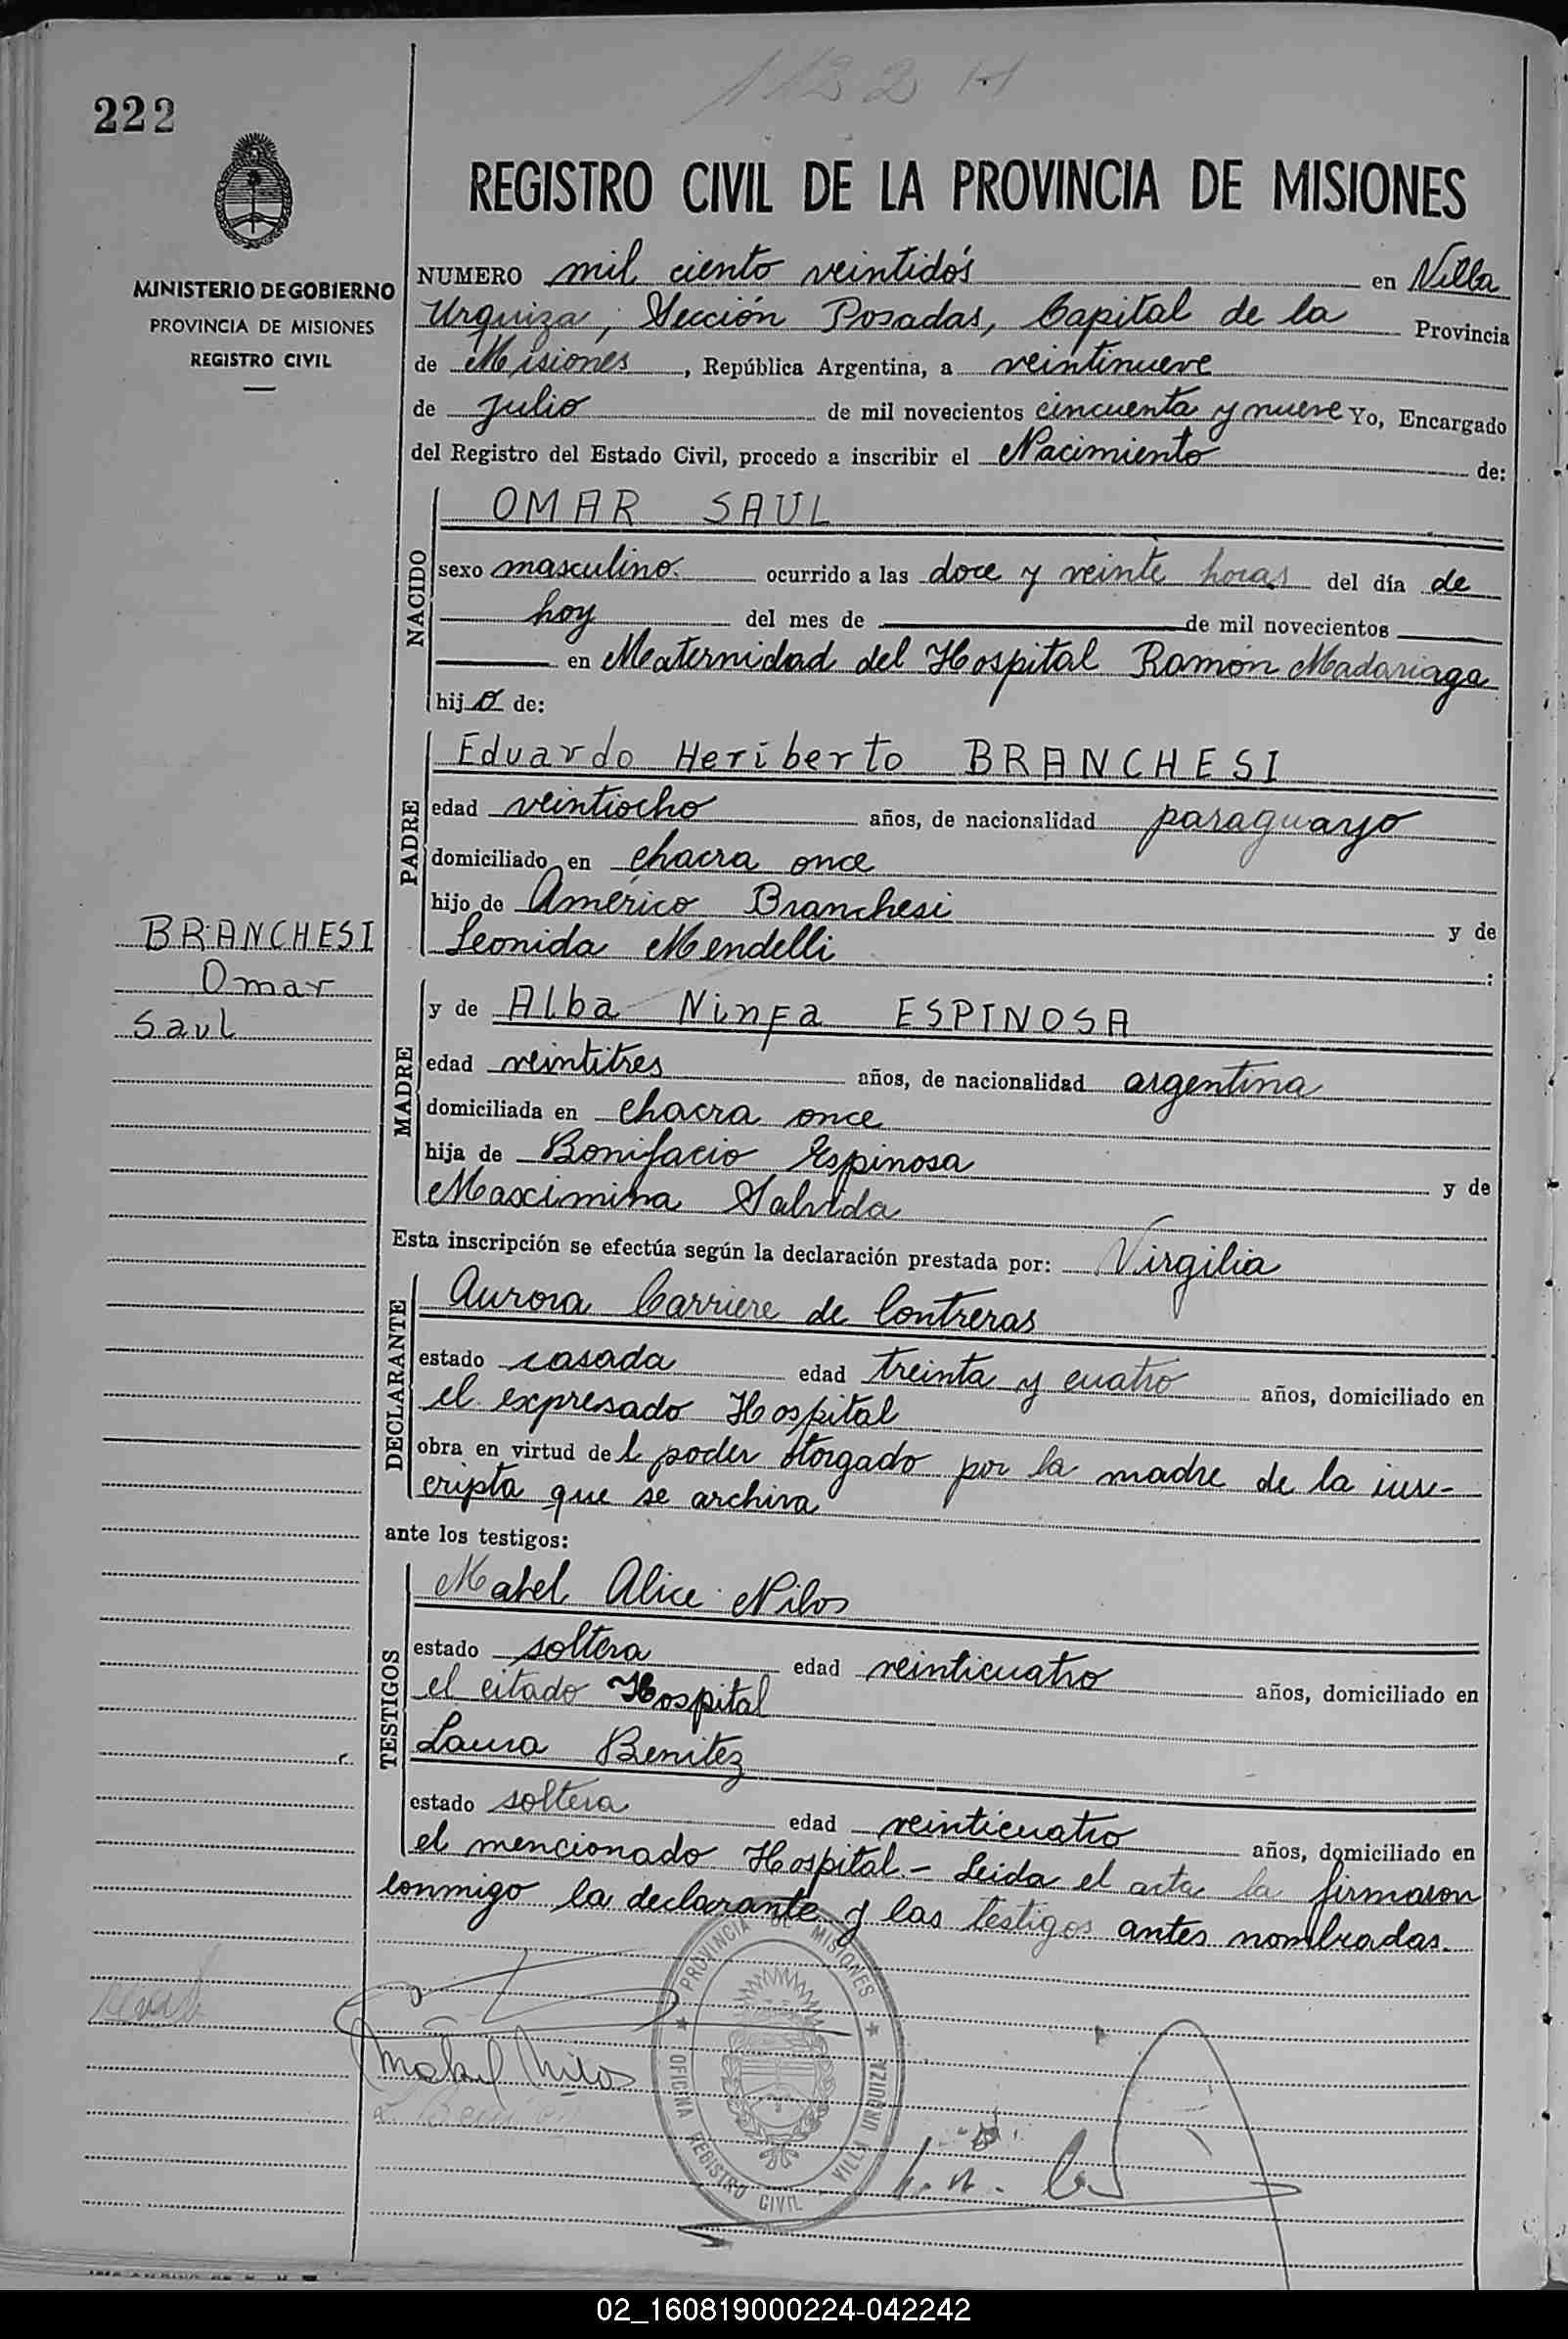 1122 H
222
REGISTRO CIVIL DE LA PROVINCIA DE MISIONES
MINISTERIO DE GOBIERNO
PROVINCIA DE MISIONES
REGISTRO CIVIL
NUMERO mil ciento veintidós en Villa
Urquiza, Sección Posadas, Capital de la Provincia
de Misiones, República Argentina, a veintinueve
de julio de mil novecientos cincuenta y nueve Yo, Encargado
del Registro del Estado Civil, procedo a inscribir el Nacimiento de:
NACIDO
OMAR SAUL
sexo masculino. ocurrido a las doce y veinte horas del día de
hoy del mes de de mil novecientos
en Maternidad del Hospital Ramón Madariaga
hijo de:
PADRE
Eduardo Heriberto BRANCHESI
edad veintiocho años, de nacionalidad paraguayo
domiciliado en chacra once
hijo de Américo Branchesi y de
Leonida Mendelli :
BRANCHESI
Omar
Saul
MADRE
y de Alba Ninfa ESPINOSA
edad veintitres años, de nacionalidad argentina
domiciliada en chacra once
hija de Bonifacio Espinosa y de
Mascimina
Esta inscripción se efectúa según la declaración prestada por: Virgilia
DECLARANTE
Aurora Carriere de Contreras
estado casada edad treinta y cuatro años, domiciliado en
el expresado Hospital
obra en virtud del poder otorgado por la madre de la ins-
cripta que se archiva
ante los testigos:
TESTIGOS
Mabel Alice Nilos
estado soltera edad veinticuatro años, domiciliado en
el citado Hospital
Laura Benitez
estado soltera edad veinticuatro años, domiciliado en
el mencionado Hospital.- Leida el acta la firmaron
conmigo la declarante y las testigos antes nombradas.
PROVINCIA DE MISIONES
OFICINA REGISTRO CIVIL - VILLA URQUIZA
Mabel Nilos
02_160819000224-042242